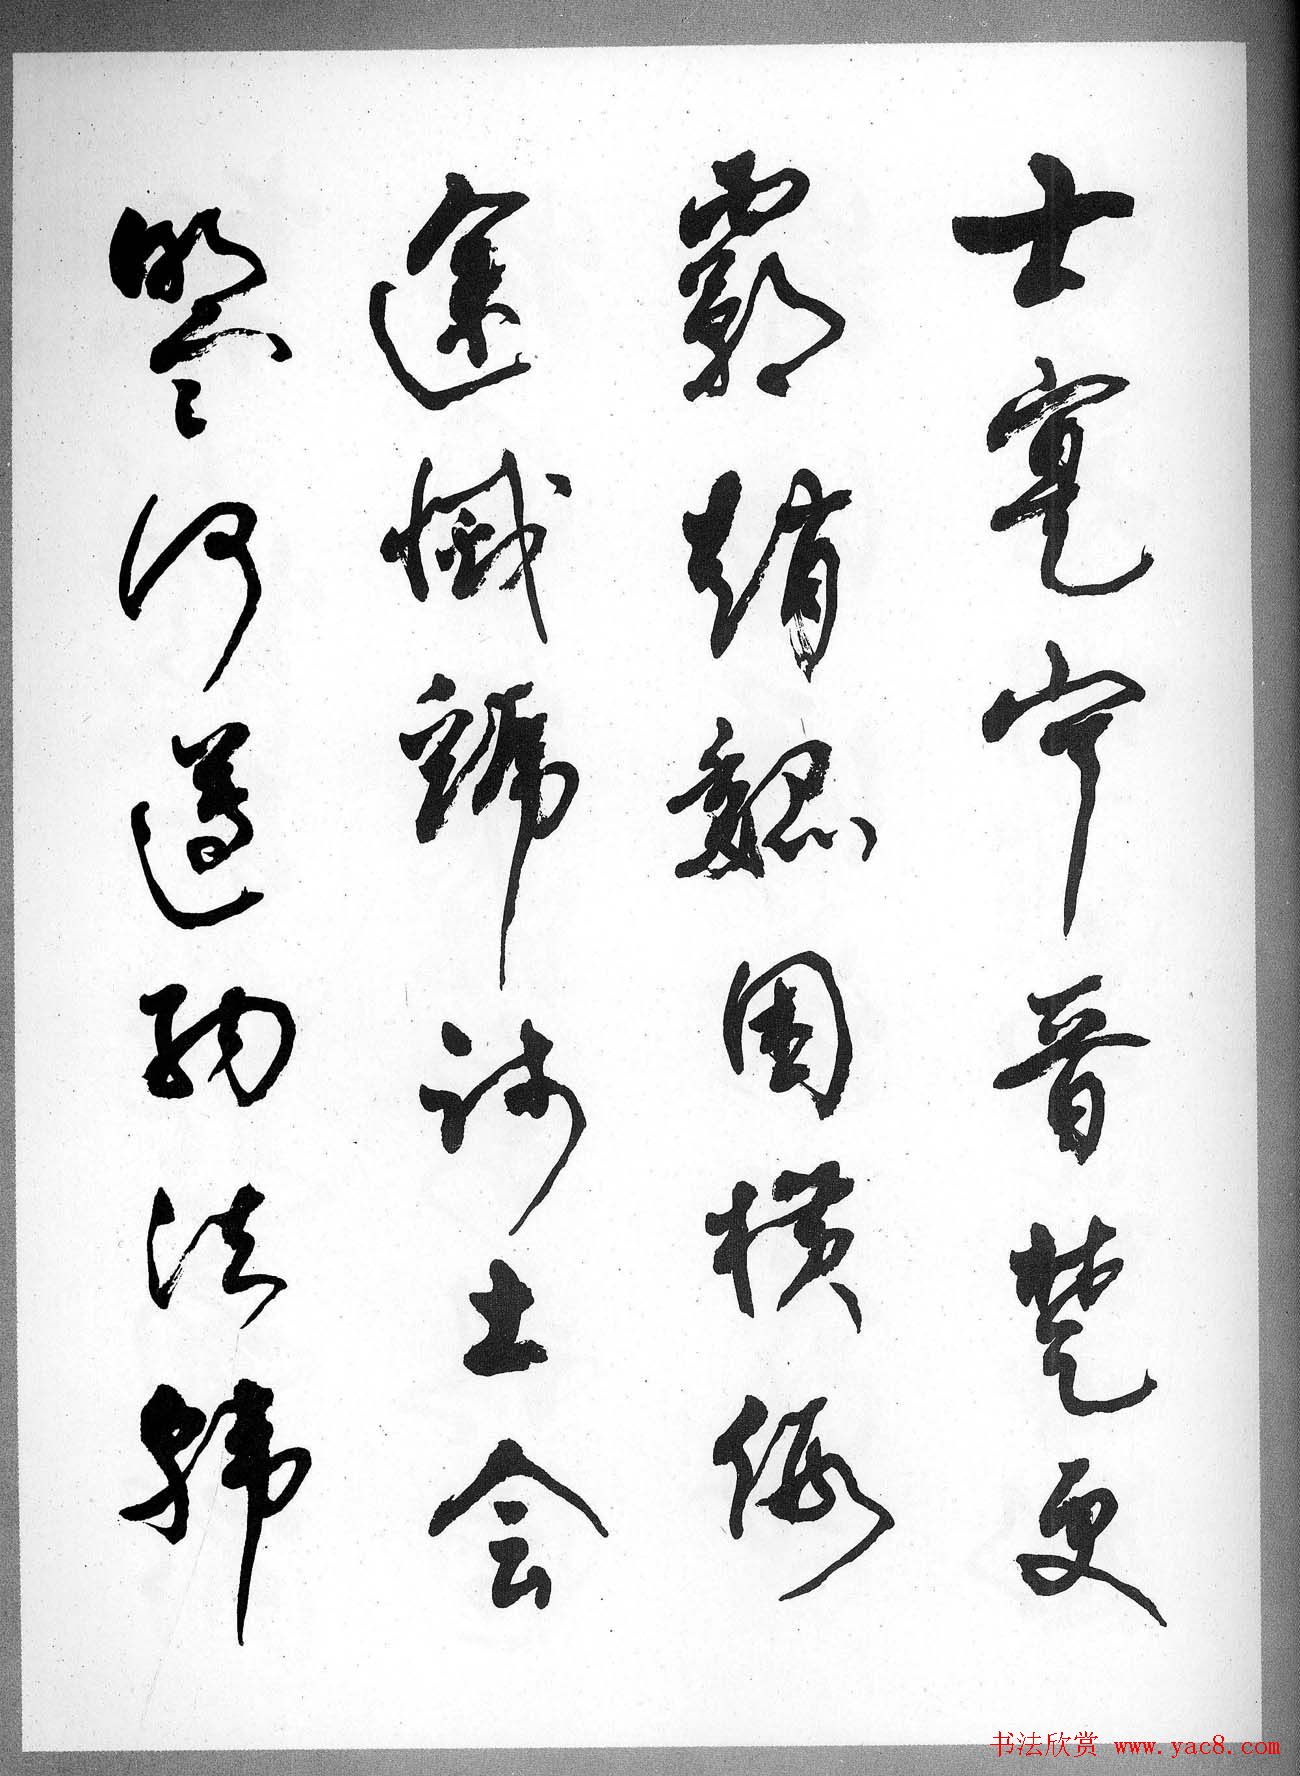 士寔宁晋楚更
霸赵魏困横假
途灭虢践土会
盟何遵约法韩
书法欣赏 www.yac8.com